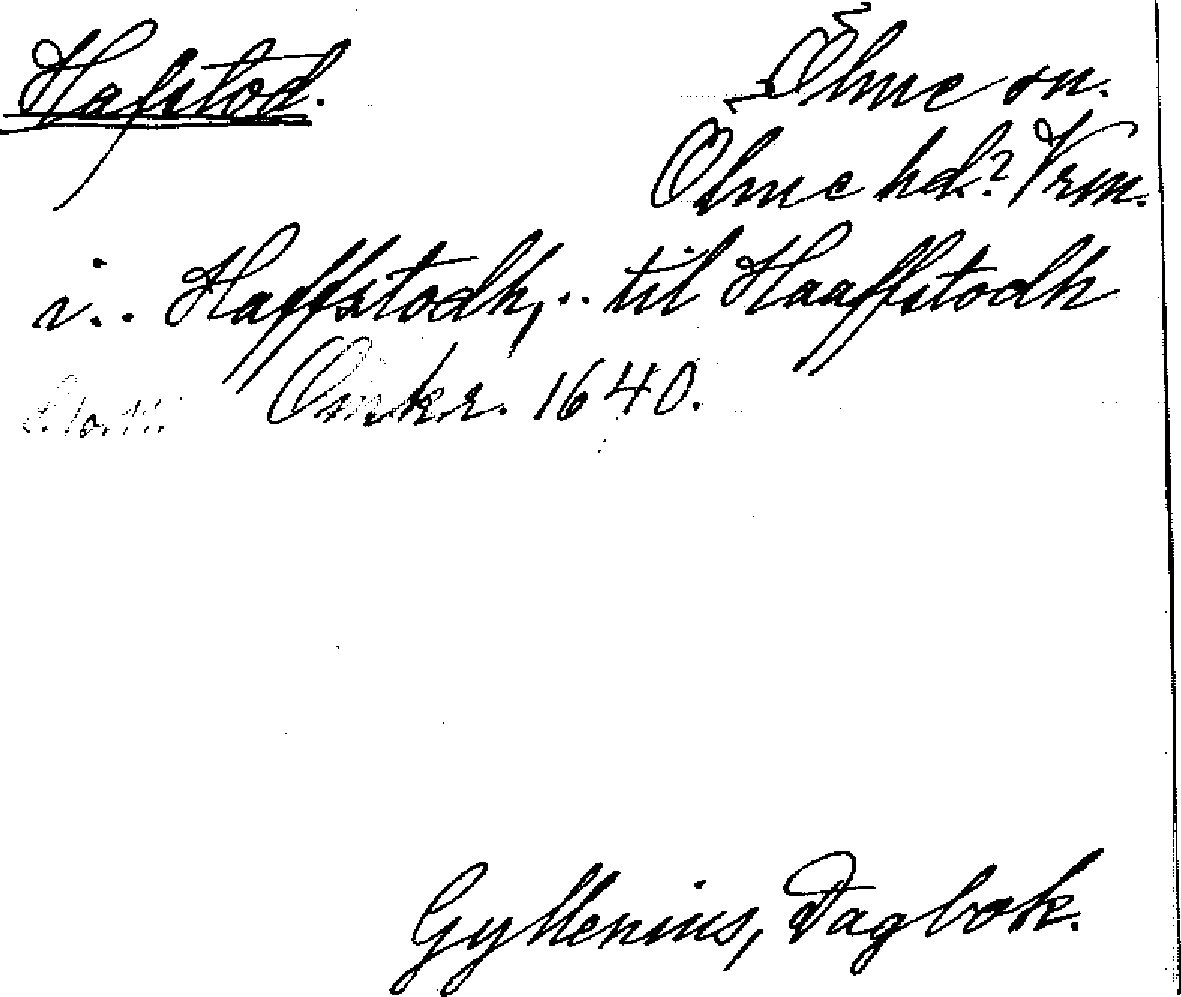 Hafstod.
Ölme sn.
Ölme hd? Vrm.
i.. Haffstodh,.. til Haaffstodh
Omkr. 1640.
Gyllenius, Dagbok.